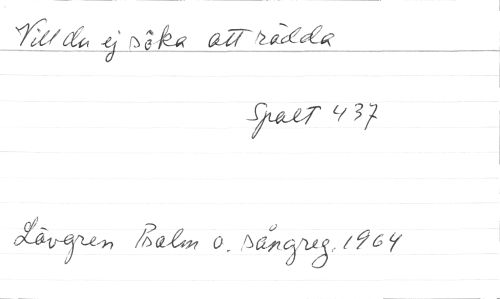 Vill du ej söka att rädda
Spalt 437
Lövgren Psalm o. sångreg. 1964